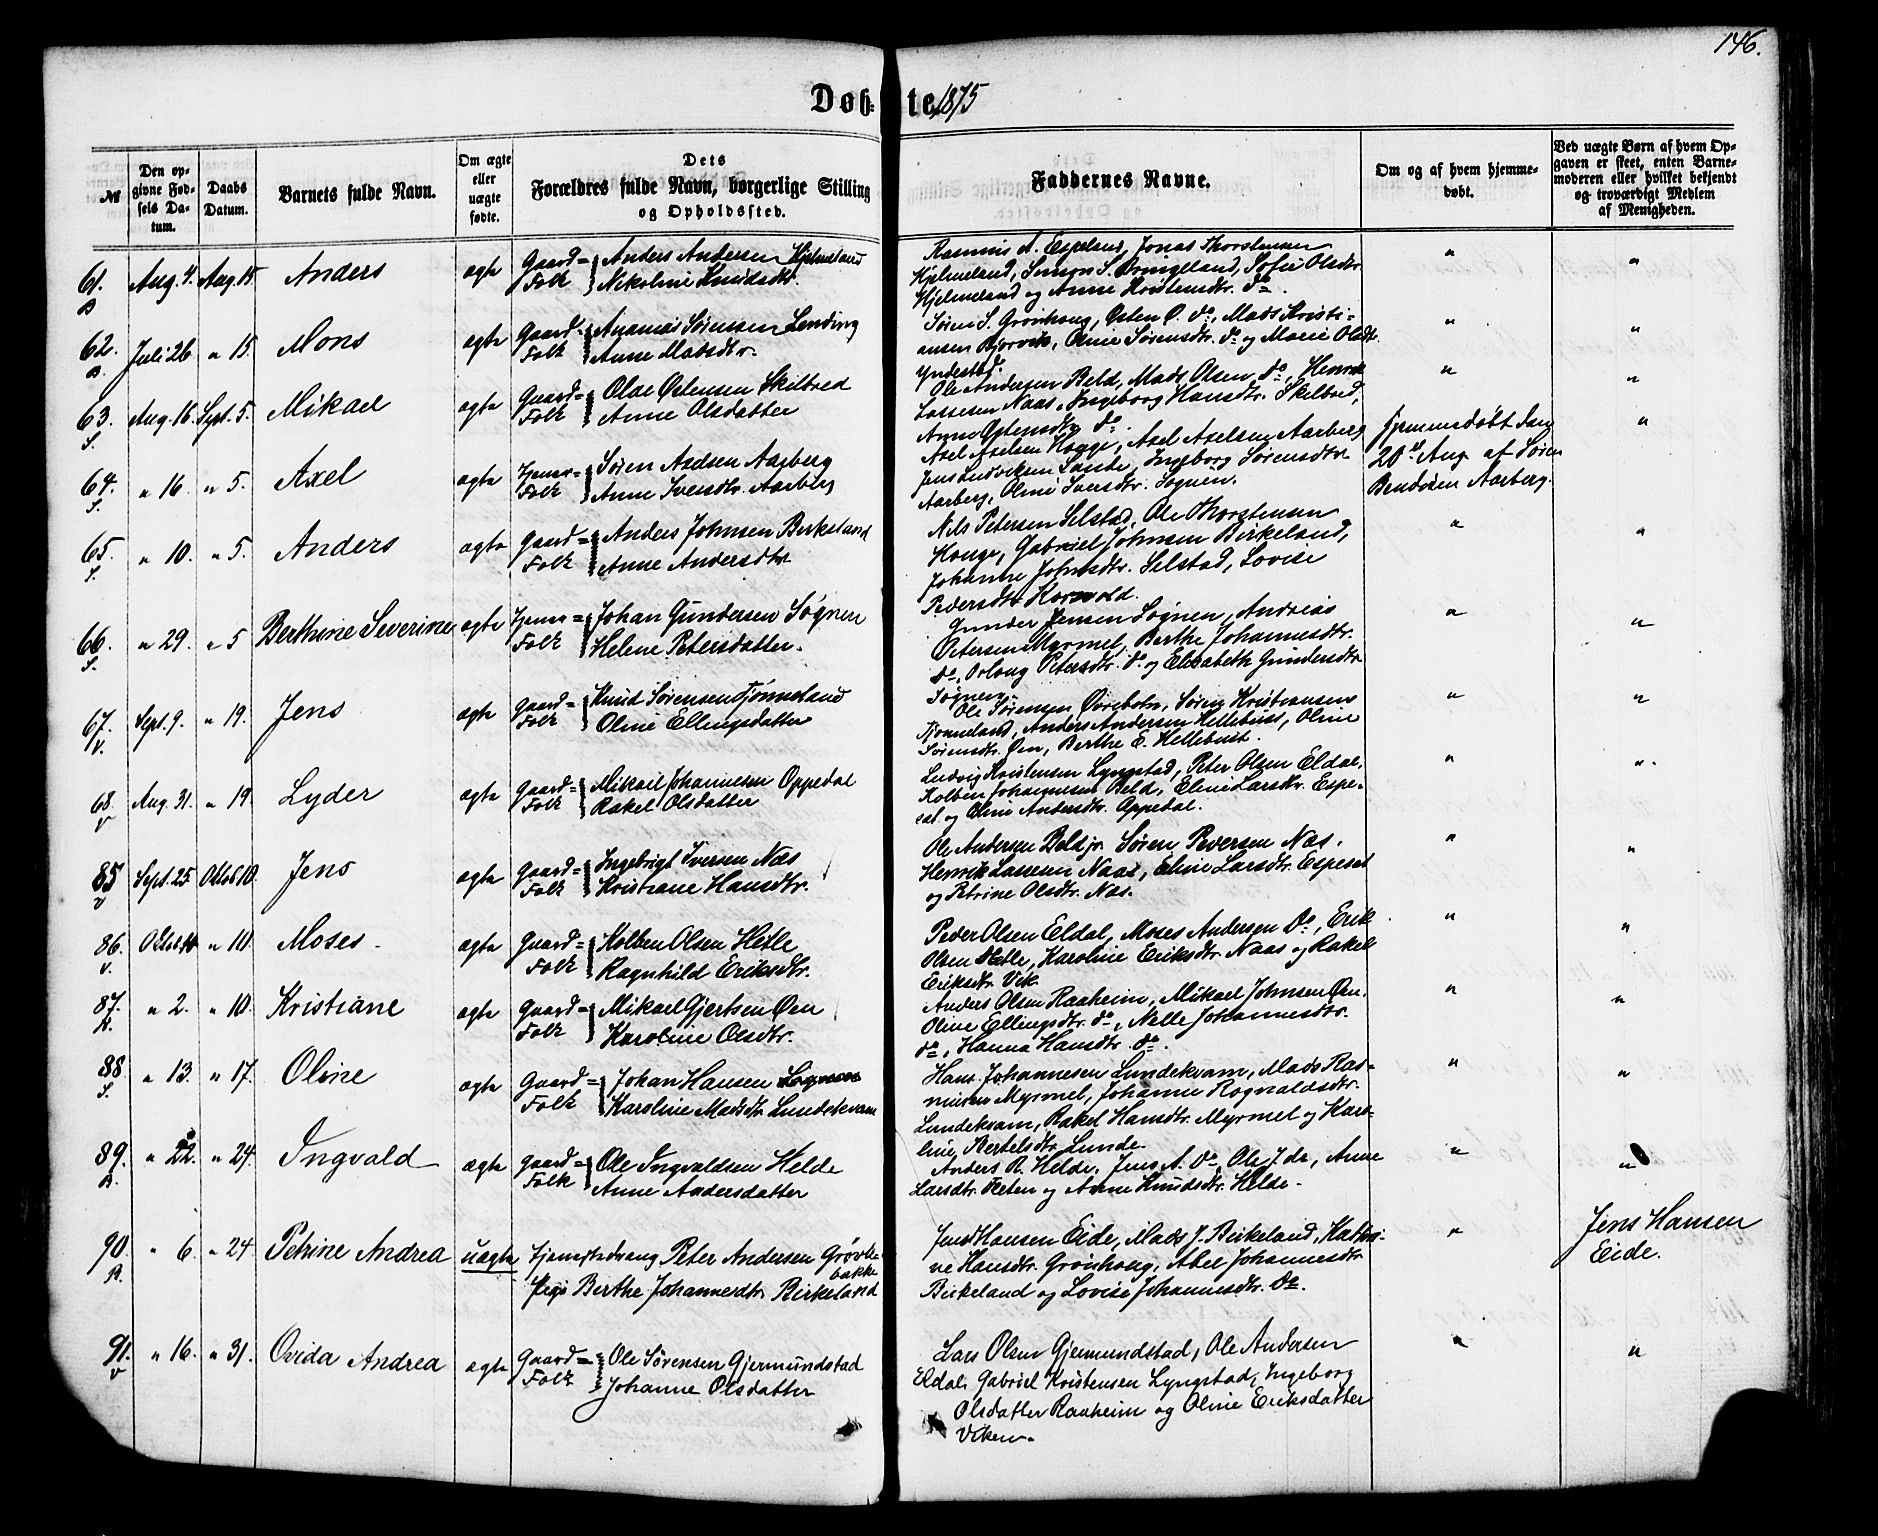 146.
Døbte, 1875
№
Den opgivne Fødsels Datum.
Daabs Datum.
Barnets fulde Navn.
Om ægte eller uægte fødte.
Dets Forældres fulde Navn, borgerlige Stilling og Opholdssted.
Faddernes Navne.
Om og af hvem hjemmedøbt.
Ved uægte Børn af hvem Opgaven er skeet, enten Barnemoderen eller hvilket bekjendt og troværdigt Medlem af Menigheden.
61. Aug. 4. Aug. 15. Anders ægte Gaard= Folk Anders Andersen Hjelmeland
Nikoline Knudsdtr.
Rasmus A. Espeland, Jonas Thorstensen
Hjelmeland, Simon S. Bringeland, Sofie Olsdtr.
Hjelmeland og Anne Kristensdtr. do. " "
62. Juli 26 " 15. Mons ægte Gaard= Folk Ananias Sørensen Lending
Anne Madsdtr.
Søren S. Grønhoug, Østen O. do, Mads Kristi-
ansen Bjorvik, Oline Sørensdtr. do og Marie Olsdtr.
Yndestad. " "
63. S. Aug. 16. Sept. 5. Mikael ægte Gaard= Folk Olae Østensen Skilbred
Anne Olsdatter
Ole Andersen Beld, Mads Olsen do, Henrik
Lassesen Naas, Ingeborg Hansdtr. Skilbred,
Anne Østensdtr. do. " "
64. S. " 16. " 5. Axel ægte Hjemr= Folk Søren Axelsen Aarberg
Anne Iversdtr. Aarberg
Axel Axelsen Hogge, Axel Axelsen Aarberg
Jens Ludviksen Sande, Ingeborg Sørensdtr.
Aarberg, Oline Iversdtr. Sognen.
hjemmedøbt den
20de Aug. af Søren
Bendixen Aarberg. "
65. S. " 10. " 5. Anders ægte Gaard= Folk Anders Johnsen Birkeland
Anne Andersdtr.
Nils Petersen Selstad, Ole Thorstensen
Houge, Gabriel Johnsen Birkeland,
Johanne Johnsdtr. Selstad, Lovise
Pedersdtr. Horsvold. " "
66. S. " 29. " 5 Berthine Severine ægte Hjemr= Folk Johan Gundersen Sognen
Helene Petersdatter.
Gunder Jensen Sognen, Andreas
Petersen Myrmel, Berthe Johannesdtr.
do, Orloug Petersdtr. do og Elisabeth Gundersdtr.
Sognen. " "
67. V. Sept. 9. " 19. Jens ægte Gaard= Folk Knud Sørensen Tjønneland
Oline Ellingsdatter
Ole Sørensen Øvrebotn, Søren Kristiansen
Tjønneland, Anders Andersen Hellebust, Oline
Sørensdtr. Øen, Berthe E. Hellebust. " "
68. V Aug. 31. " 19. Lyder ægte Gaard= Folk Mikael Johannesen Oppedal
Rakel Olsdatter
Ludvig Kristensen Lyngstad, Peter Olsen Eldal,
Kolben Johannesen Beld, Eline Larsdtr. Espe-
set og Oline Andersdtr. Oppedal. " "
85 V Sept. 25. Oktob 10. Jens ægte Gaard= Folk Ingebrigt Iversen Næs
Kristiane Hansdtr.
Ole Andersen Beld jr. Søren Peversen Næs.
Henrik Lassesen Naas, Eline Larsdtr. Espeset
og Petrine Olsdtr. Næs. " "
86. V. Oktob. " 10. Moses ægte Gaard= Folk Kolben Olsen Helle
Ragnhild Eriksdtr.
Peder Olsen Eldal, Moses Andersen do, Erik
Olsen Helle, Karoline Eriksdtr. Naas og Rakel
Eriksdtr. Vik. " "
87. " 2. " 10. Kristiane ægte Gaard= Folk Mikael Gjertsen Øen
Karoline Olsdtr.
Anders Olsen Raaheim, Mikael Johnsen Øen.
Oline Ellingsdtr. do, Nelle Johannesdtr.
do, Hanna Hansdtr. do. " "
88. S. " 13. " 17. Oline ægte Gaard= Folk Johan Hansen
Karoline Madsdtr. Lundekvam
Hans Johannesen Lundekvam, Mads Ras-
musen Myrmel, Johanne Rognaldsdtr.
Lundekvam, Rakel Hansdtr. Myrmel og Karo-
line Bertelsdtr. Lunde. " "
89. " 22. " 24. Ingvald ægte Gaard= Folk Ole Ingvaldsen Helde
Anne Andersdatter
Anders R. Helde, Jens A. do, Ole J. do, Anne
Larsdtr. Teten og Anne Knudsdtr. Helde. " "
90. " 6. " 24. Petrine Andrea uægte Tjenestedreng Peter Andersen Grøvle-
bakke
Pige Berthe Johannesdtr. Birkeland
Jens Hansen Eide, Mads J. Birkeland, Kathri-
ne Hansdtr. Grønhoug, Abel Johannesdtr.
Birkeland og Lovise Johannesdtr. do. "
Jens Hansen
Eide.
91. V " 16. " 31. Ovida Andrea ægte Gaard= Folk Ole Sørensen Gjermundstad
Johanne Olsdatter
Lars Olsen Gjermundstad, Ole Andersen
Eldal, Gabriel Kristensen Lyngstad, Ingeborg
Olsdatter Raaheim og Oline Eriksdatter
Viken. " "